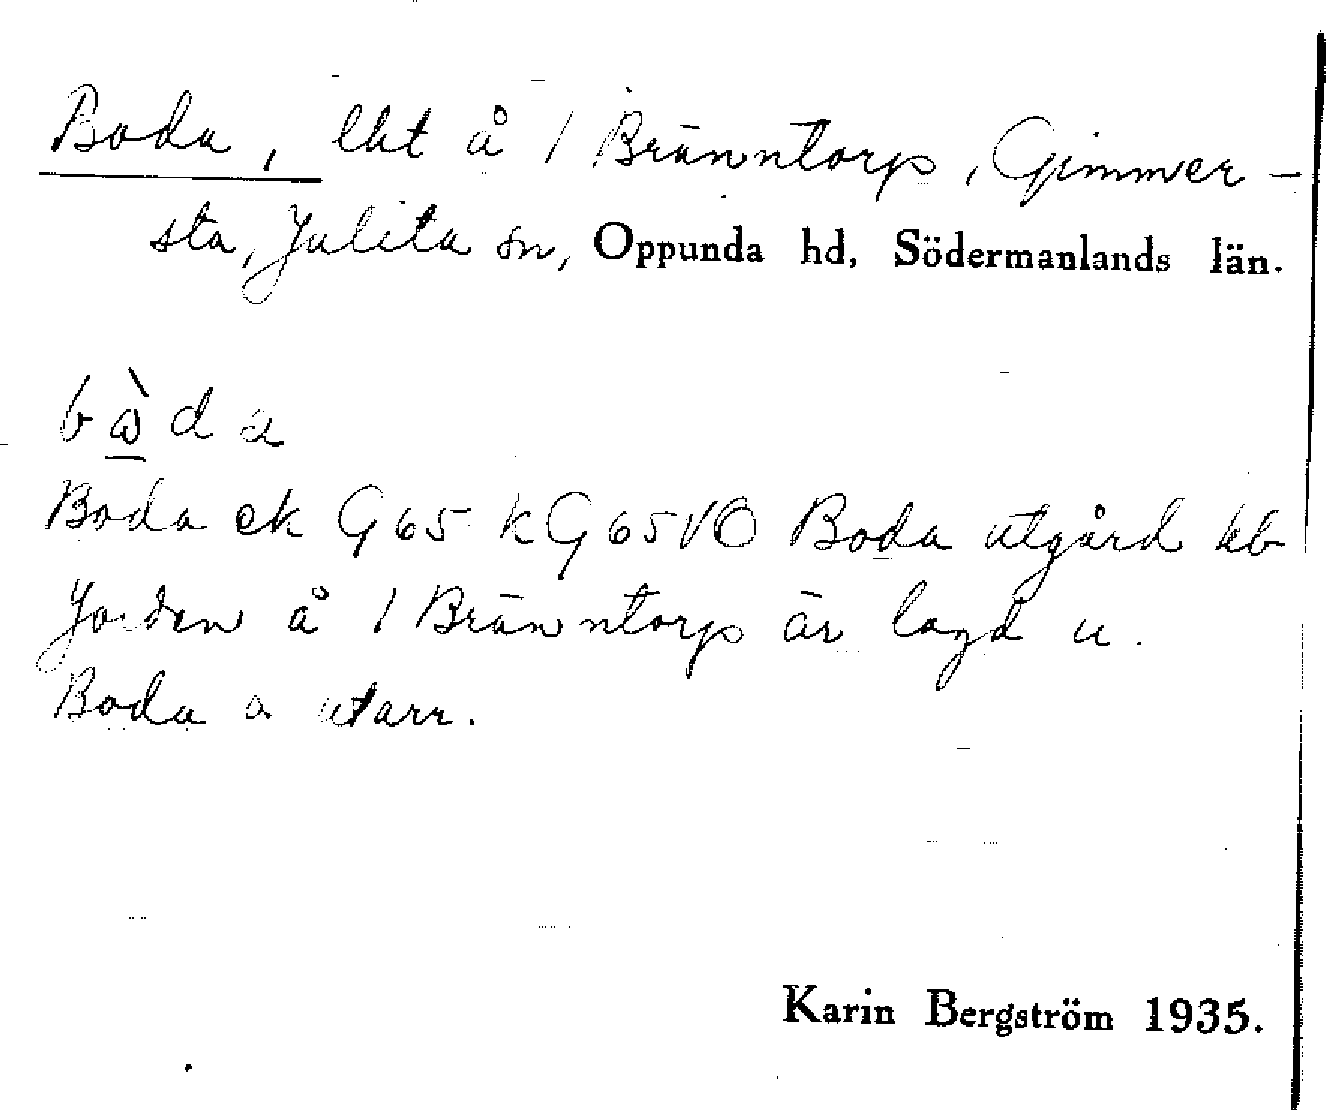 Boda, lht å 1 Bränntorp, Gimmer-
sta, Julita sn, Oppunda hd, Södermanlands län.
bὼda
Boda ek G65 KG65VO Boda utgård hb
Jorden å 1 Bränntorp är lagd u.
Boda o utarr.
Karin Bergström 1935.